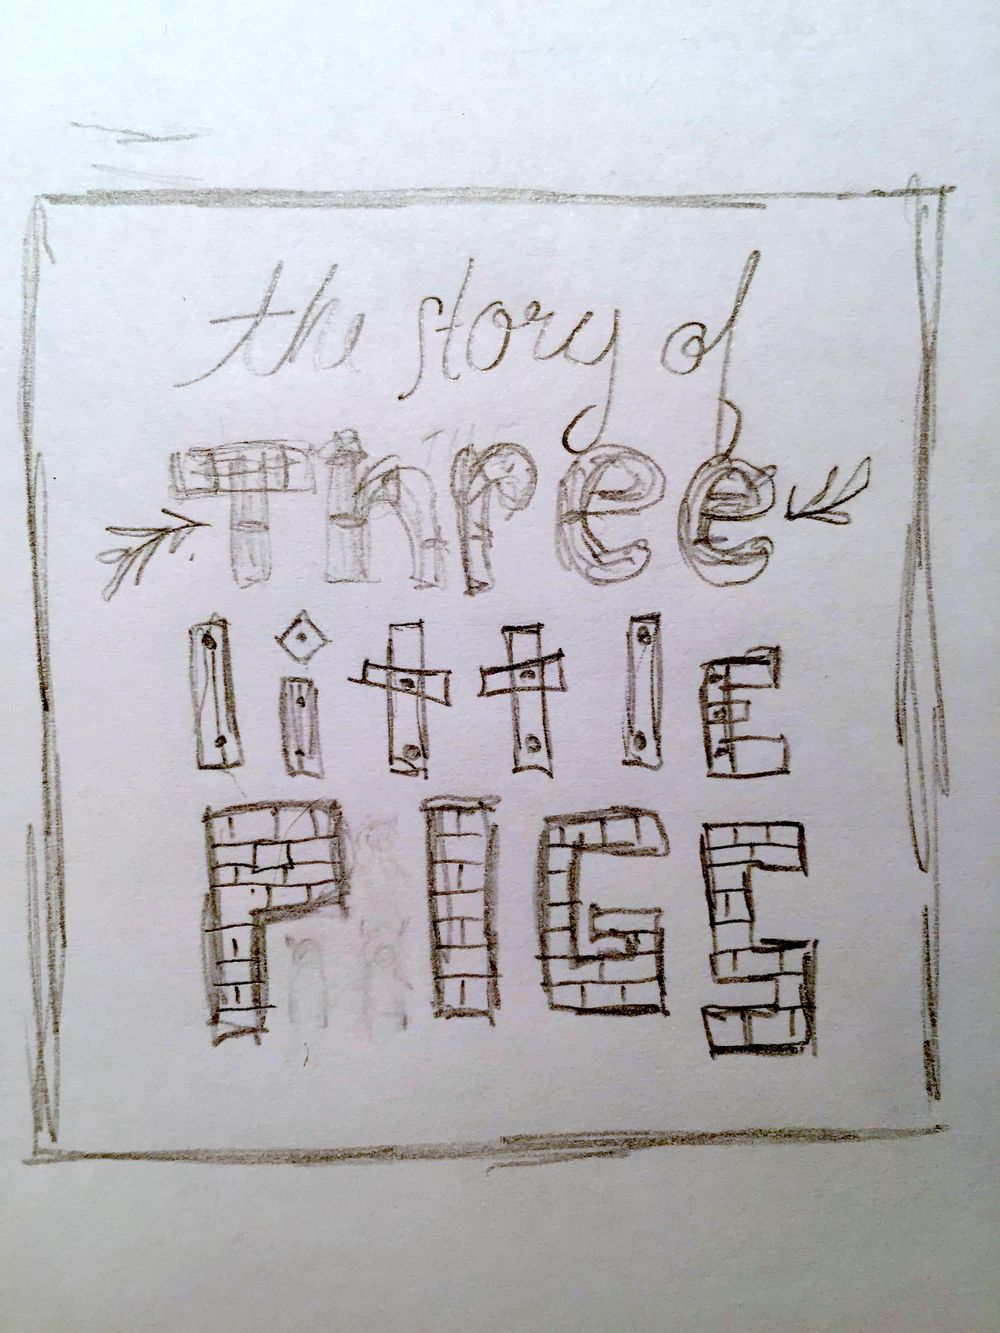 the story of
Three
little
PIGS